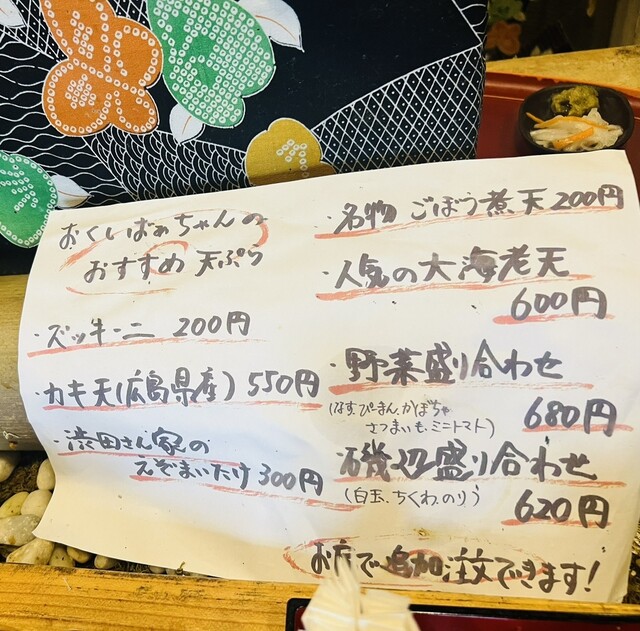 おくいばぁちゃんの
おすすめ 天ぷら
・ズッキーニ 200円
・カキ天(広島県産) 550円
・渋田さん家の
えぞまいたけ 300円
・名物 ごぼう煮天 200円
・人気の大海老天
600円
・野菜盛り合わせ
(なす、ぴーまん、かぼちゃ
さつまいも、ミニトマト)
680円
・磯辺盛り合わせ
(白玉、ちくわ、のり)
620円
お店で追加注文できます!